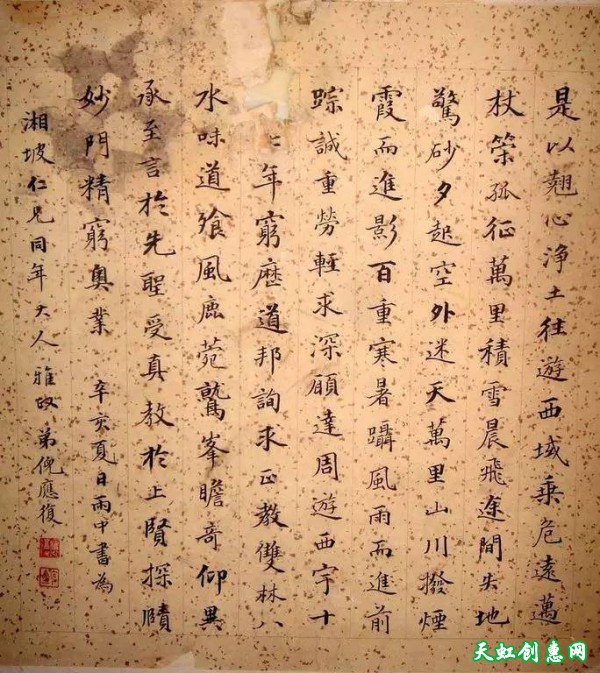 是以翹心淨土往遊西域乗危遠邁
杖策孤征萬里積雪晨飛途間失地
驚砂夕起空外迷天萬里山川撥煙
霞而進影百重寒暑躡風雨而進前
踪誠重勞輕求深願達周遊西宇十
七年窮歷道邦詢求正教雙林八
水味道飡風鹿菀鷲峯瞻奇仰異
承至言於先聖受真教於上賢探賾
妙門精窮奥業 辛亥夏日雨中書為
湘坡仁兄同年大人雅政 弟倪應復
天虹创惠网